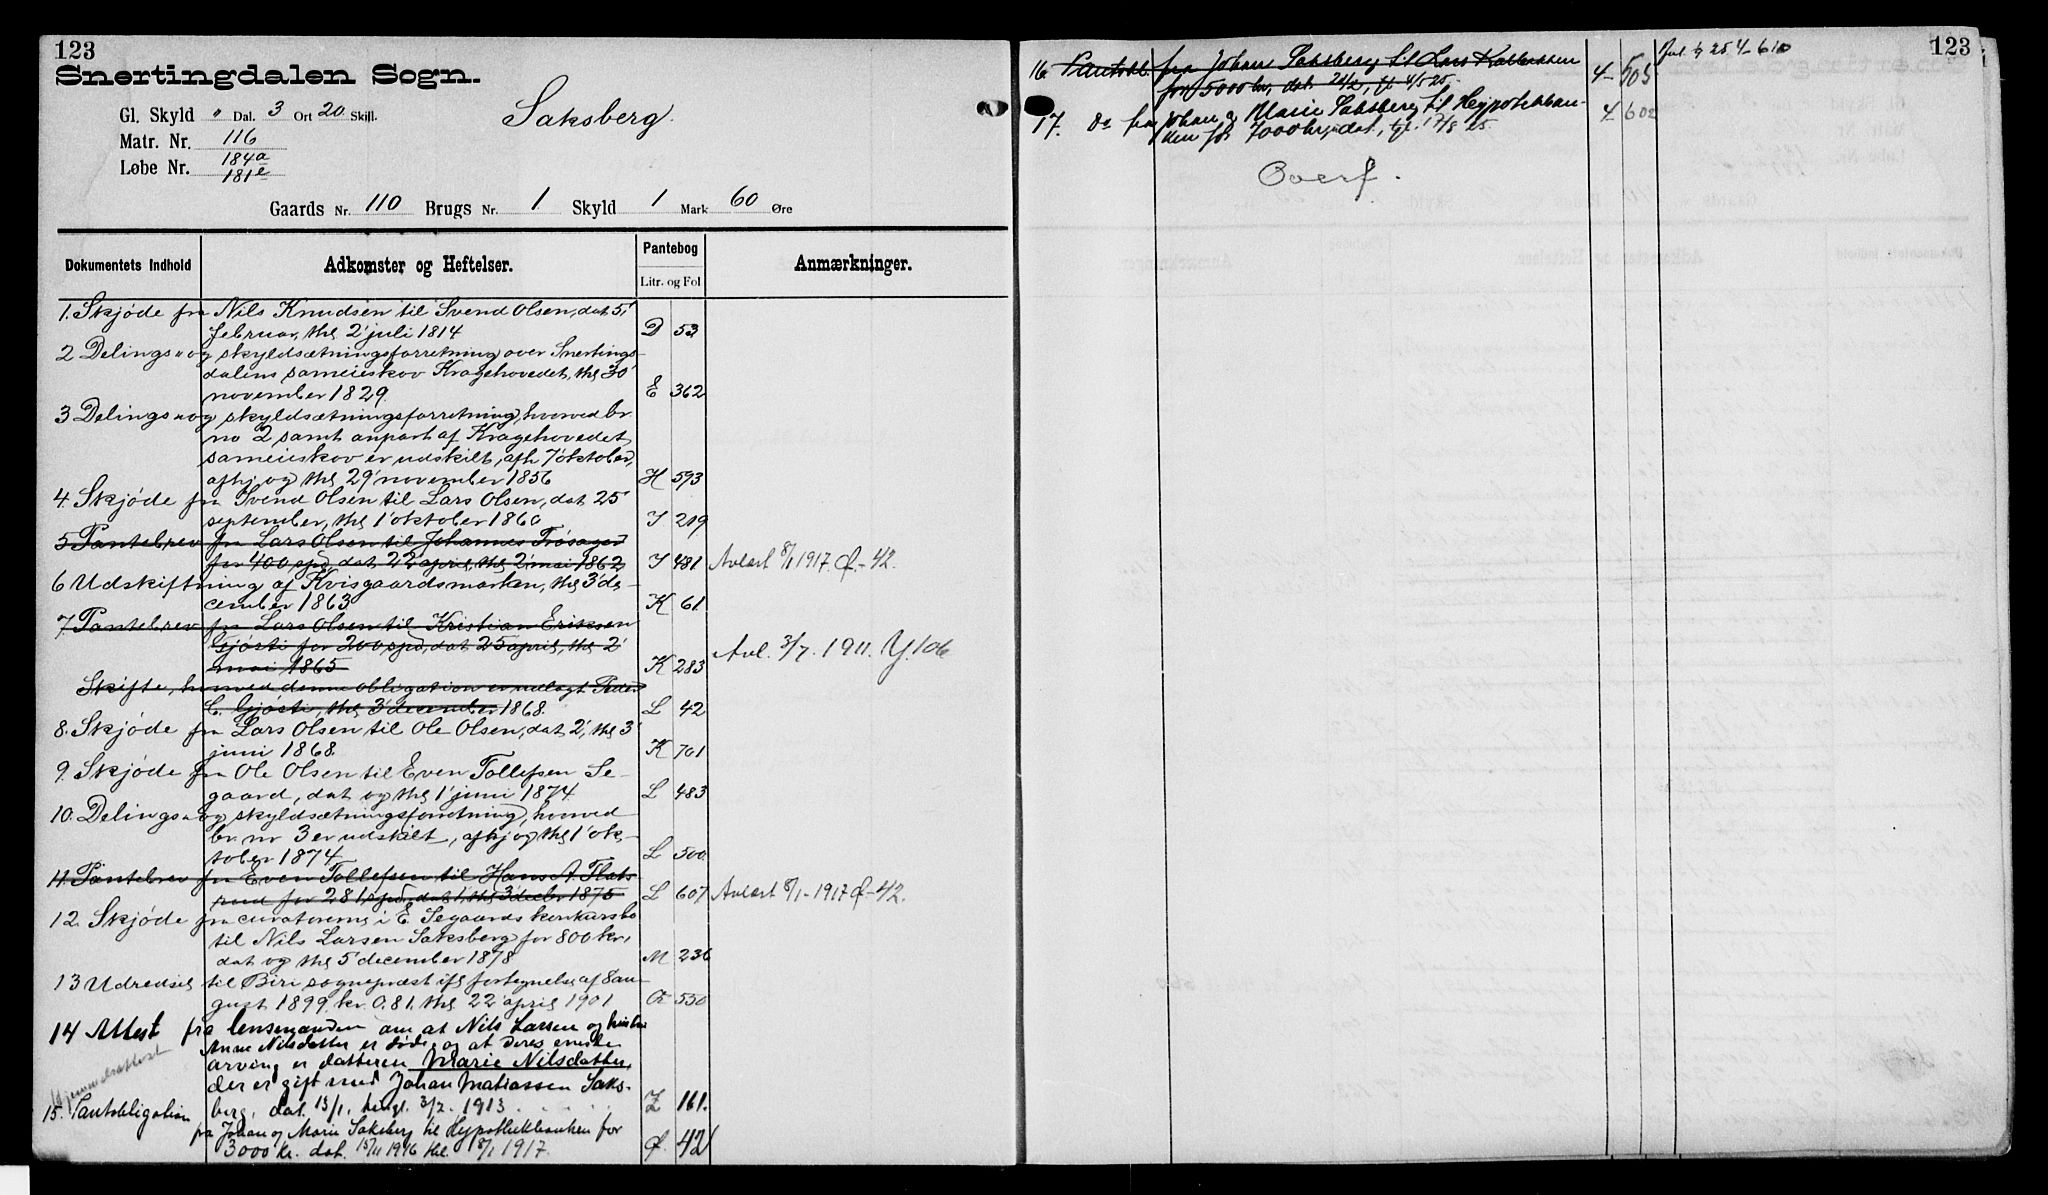 123
Snertingdalen Sogn.
Gl. Skyld " Dal. 3 Ort 20 Skill.
Saksberg.
Matr. Nr. 116
Løbe Nr. 184a
181e
Gaards Nr. 110 Brugs Nr. 1 Skyld 1 Mark 60 Øre
Dokumentets Indhold Adkomster og Heftelser. Pantebog Anmærkninger.
Litr. og Fol
1. Skjøde fra Nils Knudsen til Svend Olsen, dat 5'
februar, thl 2' juli 1814 D 53
2 Delings- og skyldsætningsforretning over Snertings-
dalens sameieskov Kragehovedet, thl 30'
november 1829. E 362
3 Delings- og skyldsætningsforretning, hvorved br.
no 2 samt anpart af Kragehovedet
sameieskov er udskilt, afh 7' oktober,
afhj og thl 29' november 1856 H 593
4. Skjøde fra Svend Olsen til Lars Olsen, dat 25'
september, thl 1' oktober 1860 I 219
5 Pantebrev fra Lars Olsen til Johannes
for 400 spd, dat 22' april, thl 2' mai 1862 I 481 Avlæst 8/1 1917. Ø-42.
6 Udskiftning af Kvisgaardsmarken, thl 3' de-
cember 1863 K 61
7. Pantebrev fra Lars Olsen til Kristian Eriksen
Gjøsti for 200 spd, dat 25 april, thl 2'
mai 1865 K 283 Avl. 3/7. 1911. Y.106
Skifte, hvorved denne obligation er udlagt Peder
C. Gjøsti, thl 3' december 1868. L 42
8. Skjøde fra Lars Olsen til Ole Olsen, dat 2', thl 3'
juni 1868. K 701
9. Skjøde fra Ole Olsen til Even Tollefsen Se-
gaard, dat og thl 1' juni 1874. L 483
10. Delings- og skyldsætningsforretning, hvorved
br. nr 3 er udskilt, afhj og thl 1' ok-
tober 1874 L 500.
11. Pantebrev fra Even Tollefsen til Hans A. Flats-
rud for 281 spd, dat 1', thl 3' decbr 1875 L 607 Avlæst 8/1-1917 Ø-42.
12. Skjøde fra curatorerne i E. Segaards konkursbo
til Nils Larsen Saksberg for 800 kr,
dat og thl 5' december 1878 M 236
13 Udredsel til Biri sogneprest ifl fortegnelse af 8 au-
gust 1899. kr. 0.81. thl 22' april 1901 550
14 Attest fra lensmanden om at Nils Larsen og hustru
Anne Nilsdatter er døde og at deres eneste
arving er datteren Marie Nilsdatter,
der er gift med Johan Matiassen Saks-
Hjemmelsattest
berg, dat. 13/1, tingl. 3/2. 1913. Z 161.
15. Pantobligation
fra Johan og Marie Saksberg til Hypothekbanken for
3000 kr. dat. 15/11 1916 thl. 8/1 1917. Ø. 42
123
16 Pantobl. fra Johan Saksberg til Lars
for 5000 kr, dat. 24/2, tgl 4/5 25. 4 505
17. Do fra Johan og Marie Saksberg til Hypotekban-
ken for 7000 kr, dat., tgl. 17/8 25. 4 602
Overf.